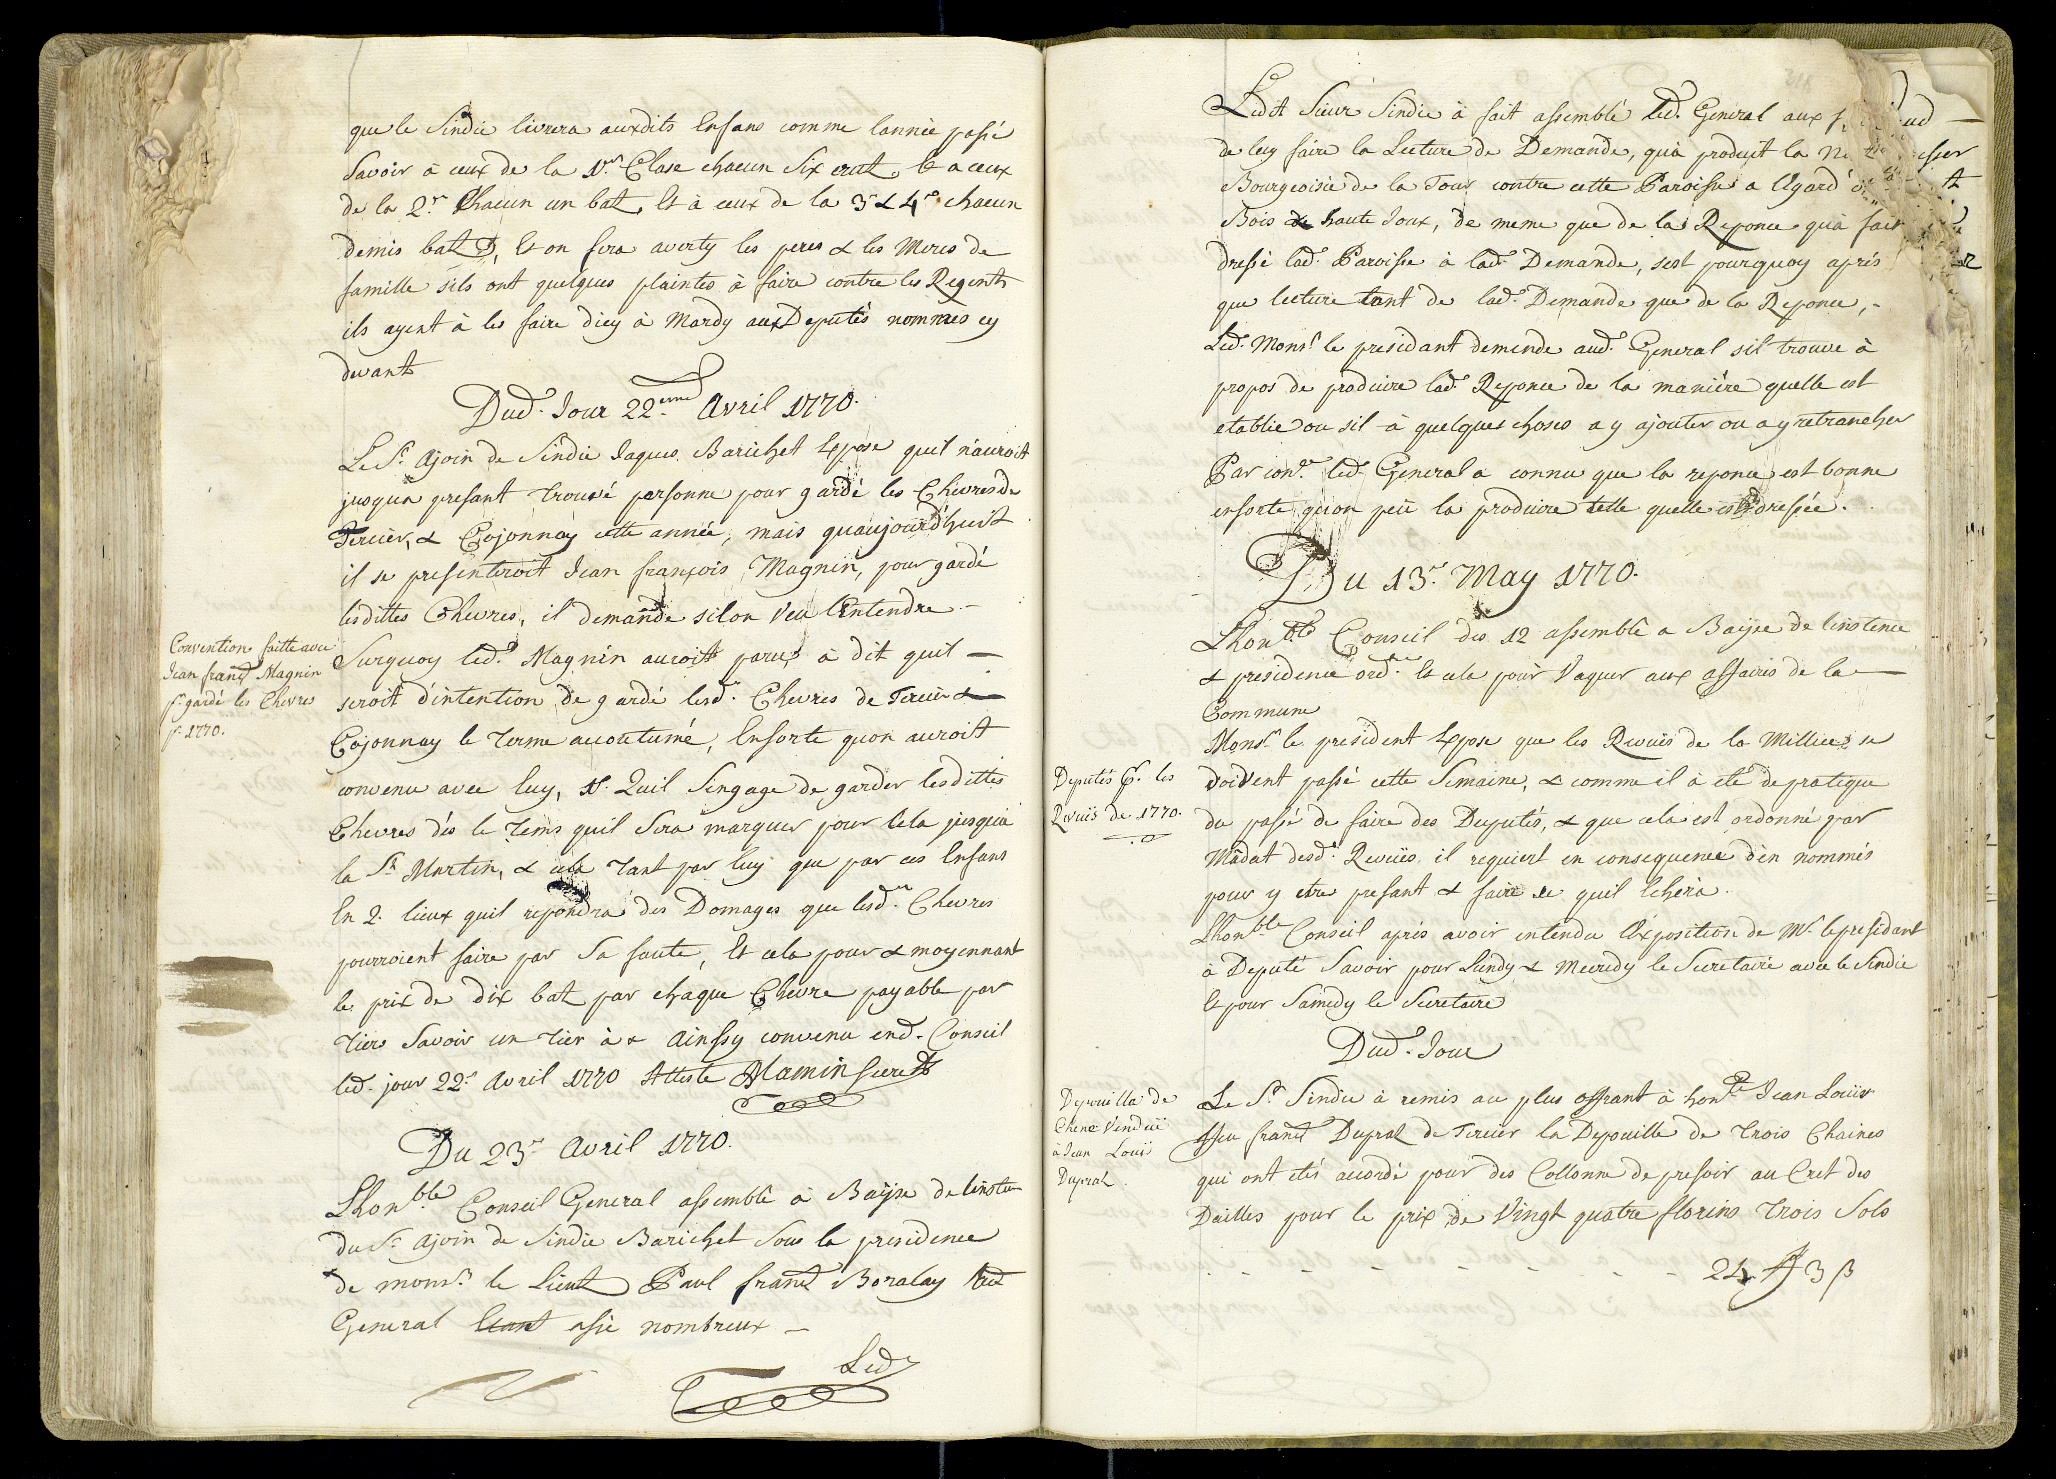 que le Sindic livrera auxdits Enfans comme lannée passé
Savoir à ceux de la 1.re Clase chacun Six crut, & a ceux
de la 2.e Chacun un batz, Et à ceux de la 3.e & 4.e chacun
demis batz, Et on fera averty les peres & les Meres de
famille s'ils ont quelques plaintes à faire contre les Regents
ils ayent à les faire d'icy à Mardy aux Deputés nommés cy
devant
Dud. Jour 22.eme Avril 1770.
Le S.r Ajoin de Sindic Jaques Barichet Expose quil n'auroit
jusqua presant trouvé personne pour gardé les Chevres de
Tercier, & Cojonnay cette année, mais quaujourd'huit
il se presenteroit Jean françois Magnin, pour gardé
lesdittes Chevres, il demande silon veu l'Entendre –
Convention faitte avec
Jean franç. Magnin
p.r gardé les Chevres
p.r 1770.
Surquoy led. Magnin auroit parus à dit quil –
seroit d'intention de gardé lesd. Chevres de Tercier &
Cojonnay le terme accoutumé, Ensorte quon auroit
convenu avec luy, 1.e Quil Singage de garder lesdittes
Chevres dés le tems quil Sera marquer pour Cela jusqua
la S.t Martin, & cela tant par luy que par ces Enfans
En 2. lieux quil repondra des Domages que lesd. Chevres
pourroient faire par Sa faute, Et cela pour & moyennant
le prix de dix batz par chaque Chevre payable par
tier Savoir un tier à & Ainssy convenu end. Conseil
led. jour 22.e Avril 1770 Atteste Mamin Secret.
Du 23.e Avril 1770.
L'hon.ble Conseil General assemblé à Baÿse de linstce
du S.r Ajoin de Sindic Barichet Sous la presidence
de mons.r le Lieut. Paul franç. Boralay led
General Etant assé nombreux –
Led.
Ledit Sieur Sindic à fait assemblé led. General aux
de luy faire la Lecture de Demande, qu'à produit la
Bourgeoisie de la Tour contre cette Paroisse a l'Egard
Bois de haute Joux, de meme que de la Reponce qu'à fait
dressé lad. Paroisse à lad. Demande, sest pourquoy aprés
que lecture tant de lad. Demande que de la Reponce, –
Led. Mons.r le presidant demende aud. General sil trouve à
propos de produire lad. Reponce de la maniére quelle est
etablie ou sil à quelques choses a y ajouter ou a y retrancher
Par con.e led. General a connu que la reponce est bonne
ensorte qu'on peü la produire telle quelle est dressée.
Du 13.e May 1770.
L'hon.ble Conseil des 12 assemblé a Baÿse de linstence
& presidence ord.re Et cela pour Vaquer aux affaires de la
Commune
Deputés p.r les
Revuës de 1770.
Mons.r le president Expose que les Revuës de la Millice se
doivent passé cette Semaine, & comme il à eté de pratique
du passé de faire des Deputés, & que cela est ordonné par
Mãdat desd. Revuës il requiert en consequence d'en nommés
pour y etre presant & faire se quil Echera.
L'hon.ble Conseil aprés avoir entendu l'Exposition de M.r le presidant
à Deputé Savoir pour Lundy & Mecredy le Secretaire avec le Sindic
Et pour Samedy le Secretaire
Dud. Jour
Depouilla de
Chene Venduë
à Jean Louïs
Dupraz.
Le S.r Sindic à remis au plus offrant à hon.te Jean Louïs
ffeu franç. Dupraz de Tercier la Depouille de trois Chaines
qui ont étés accordé pour des Collonne de pressoir au Cret des
Dailles pour le prix de Vingt quatre florins trois Sols
24 ff 3 ß